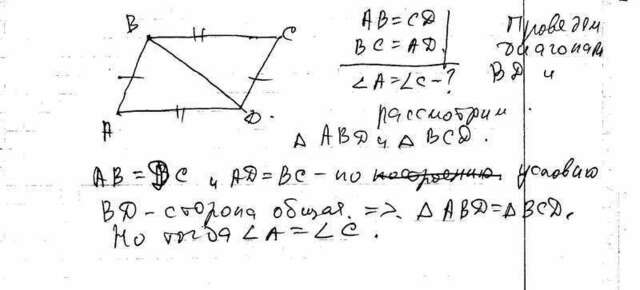 B
C
A
D.
AB=CD
BC=AD.
∠A=∠C-?
Проведём
диагонам
BD и
рассмотрим
△ ABD и △ BCD.
AB=DC и AD=BC-по построению условию
BD-сторона общая. => △ABD=△BCD.
Но тогда ∠A=∠C.